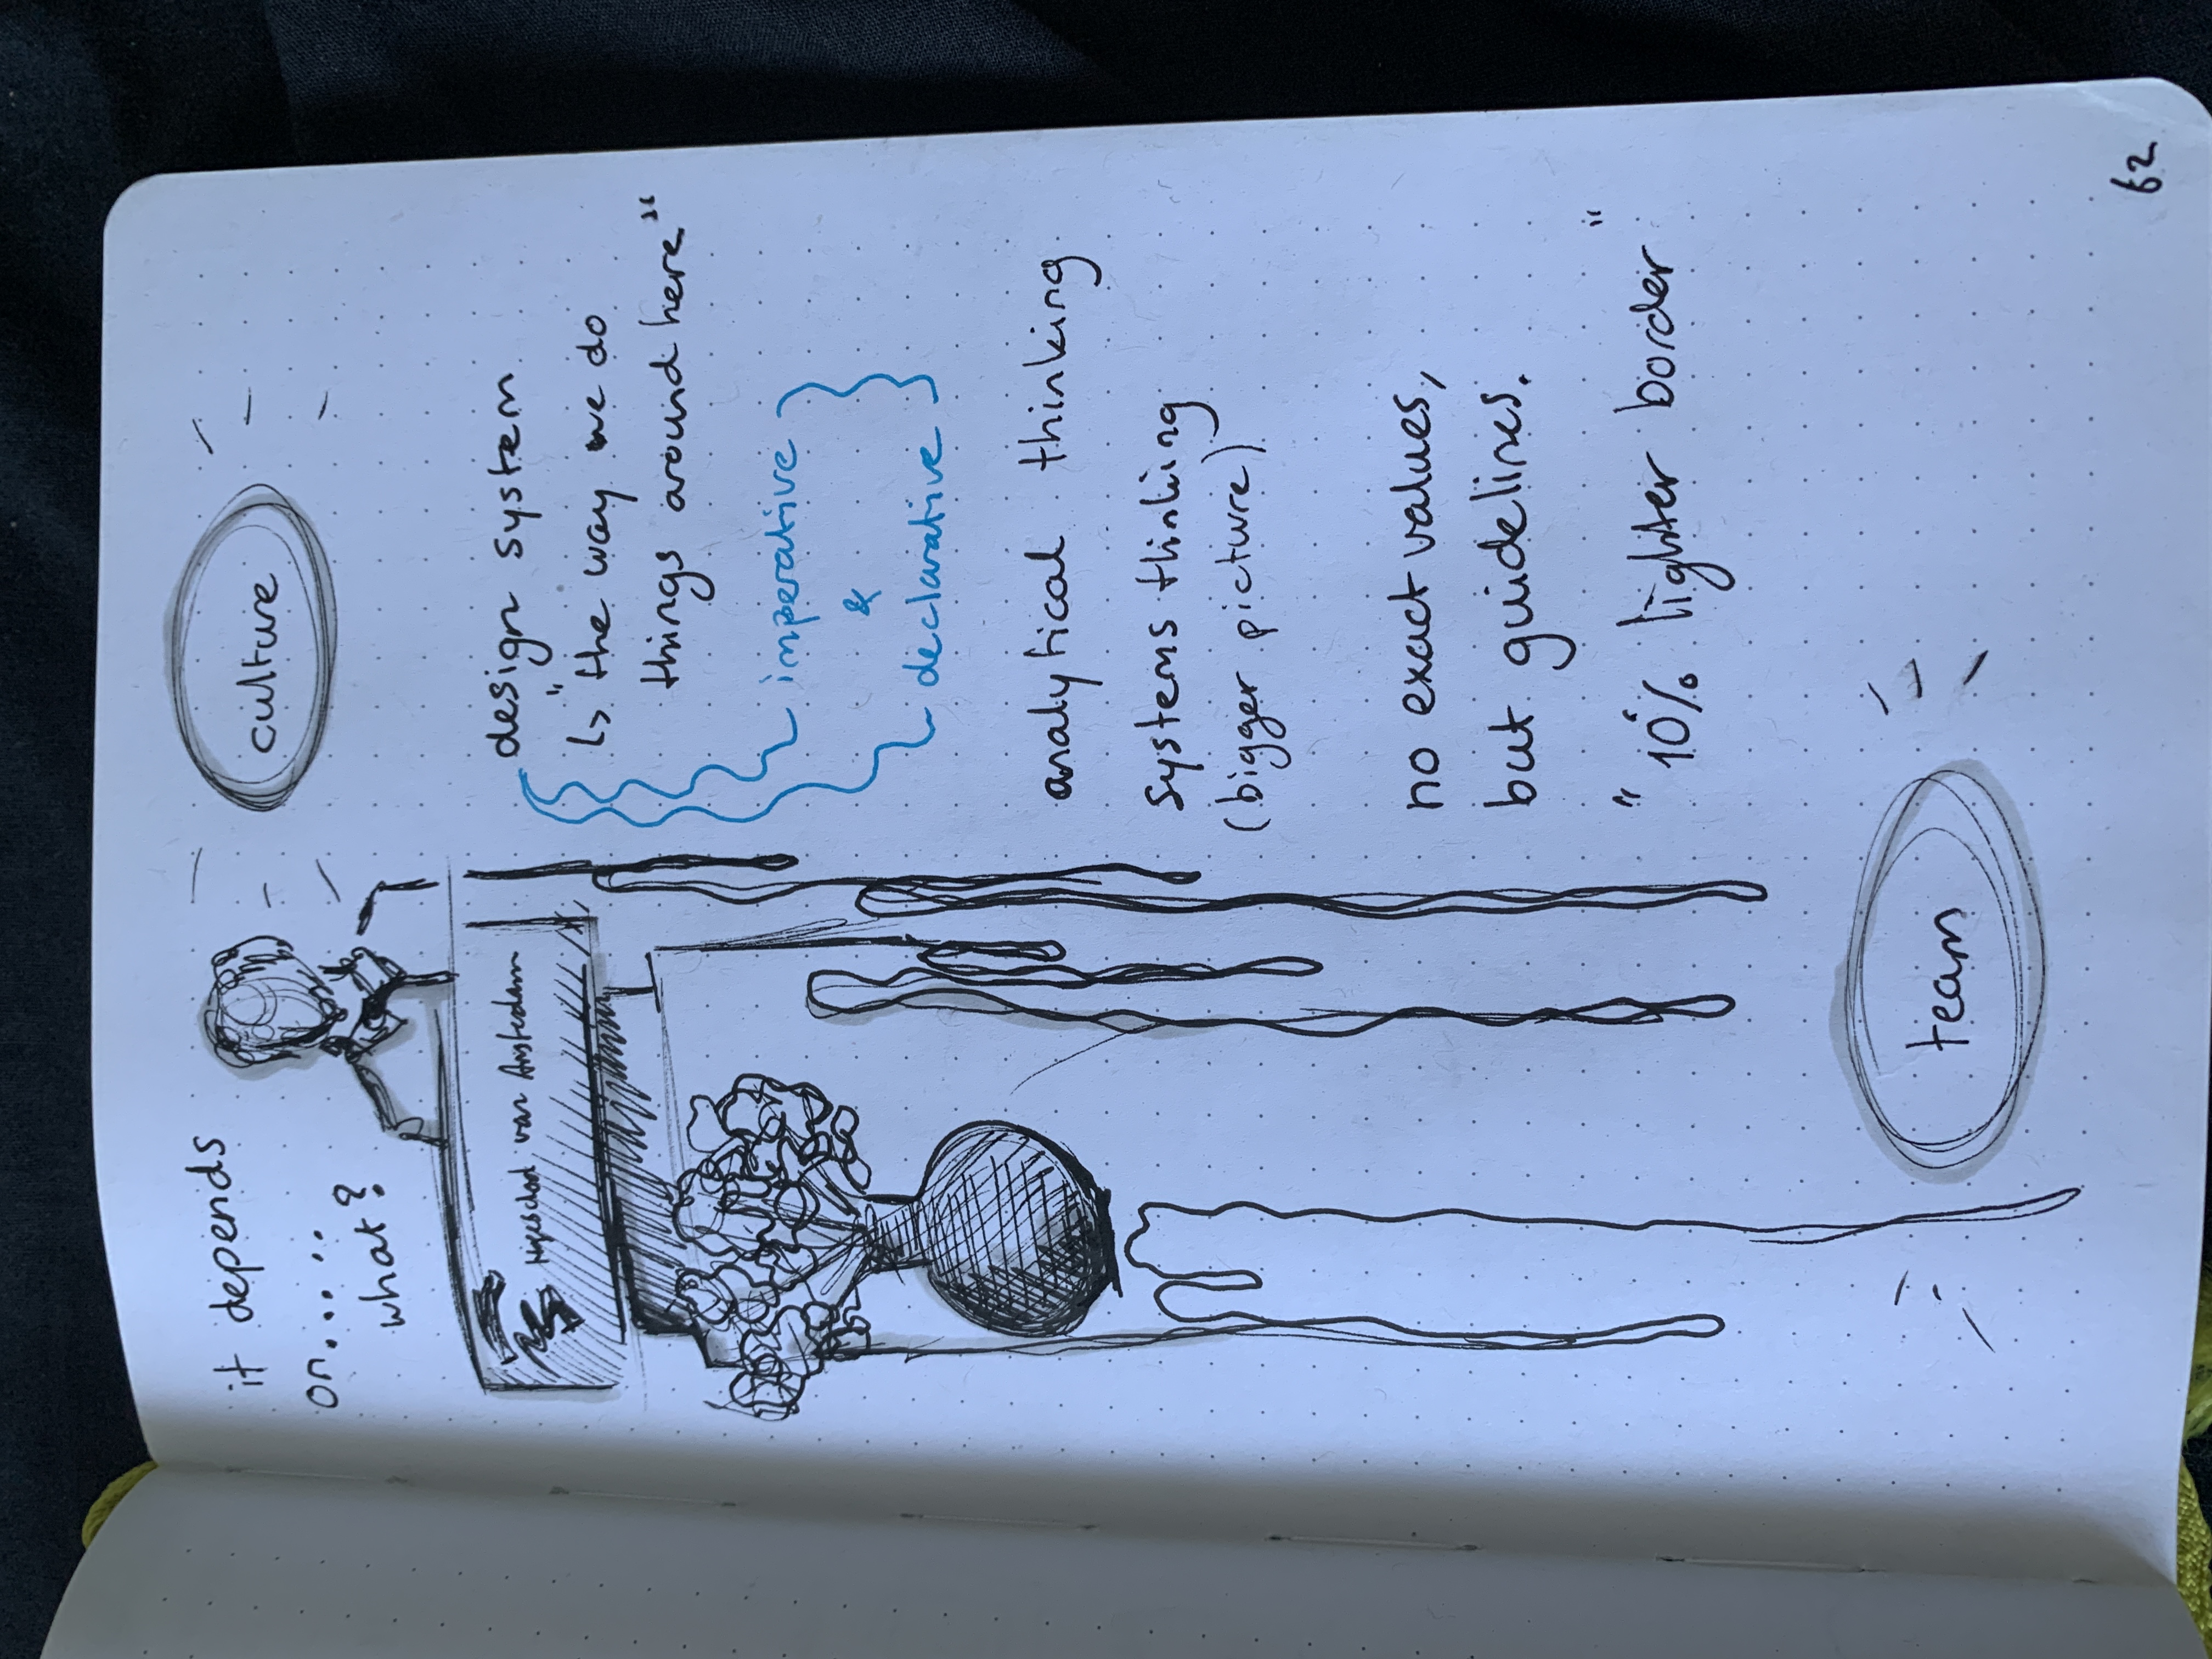 it depends
on.......
what?
culture
Hogeschool van Amsterdam
design system
↳ "the way we do
things around here"
imperative
&
declarative
analytical thinking
systems thinking
(bigger picture)
no exact values,
but guidelines.
"10% lighter border"
team
62